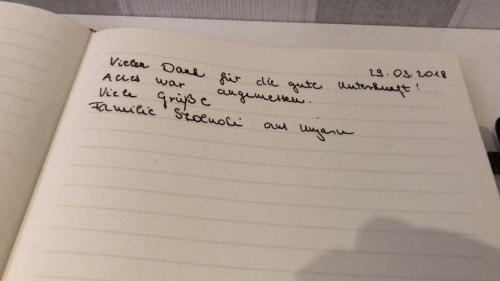 29.03.2018
Vielen Dank für die gute Unterkunft!
Alles war angemessen.
Viele Grüße
Familie aus Ungarn